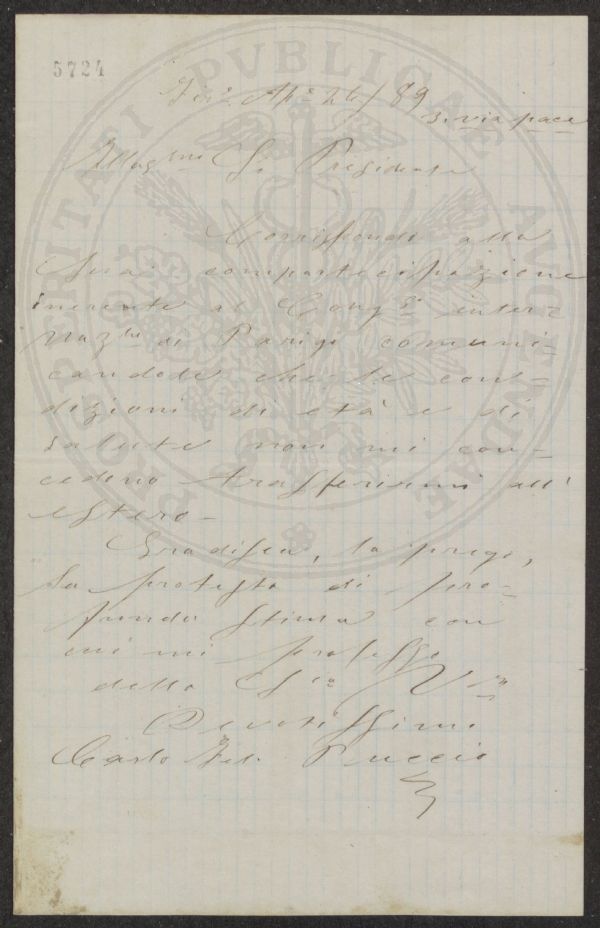 5724
Apr. 26/89
3. via pace
Sr. Presidente
Corrispondo alla
Sua compartecipazione
inerente al Congso inter=
nazle di Parigi comuni=
candole che le con=
dizioni di età e di
salute non mi con=
cedono trasferirmi all'
estero-
Gradisca, la prego,
la protesta di pro=
funda stima con
cui mi professo
della
Devotissimo
Carlo Puccio
PROSPERITATI PVBLICAE AVGENDAE